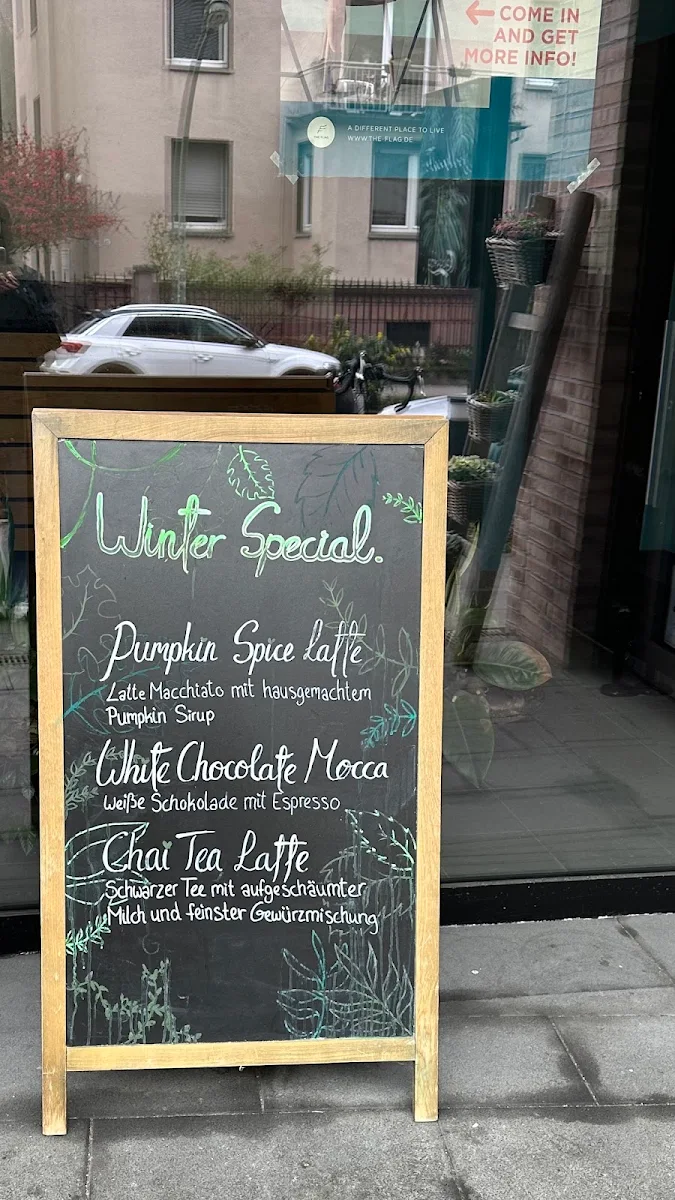 COME IN
AND GET
MORE INFO!
THE FLAG
A DIFFERENT PLACE TO LIVE
WWW.THE-FLAG.DE
Winter Special.
Pumpkin Spice Latte
Latte Macchiato mit hausgemachtem
Pumpkin Sirup
White Chocolate Mocca
Weiße Schokolade mit Espresso
Chai Tea Latte
Schwarzer Tee mit aufgeschäumter
Milch und feinster Gewürzmischung